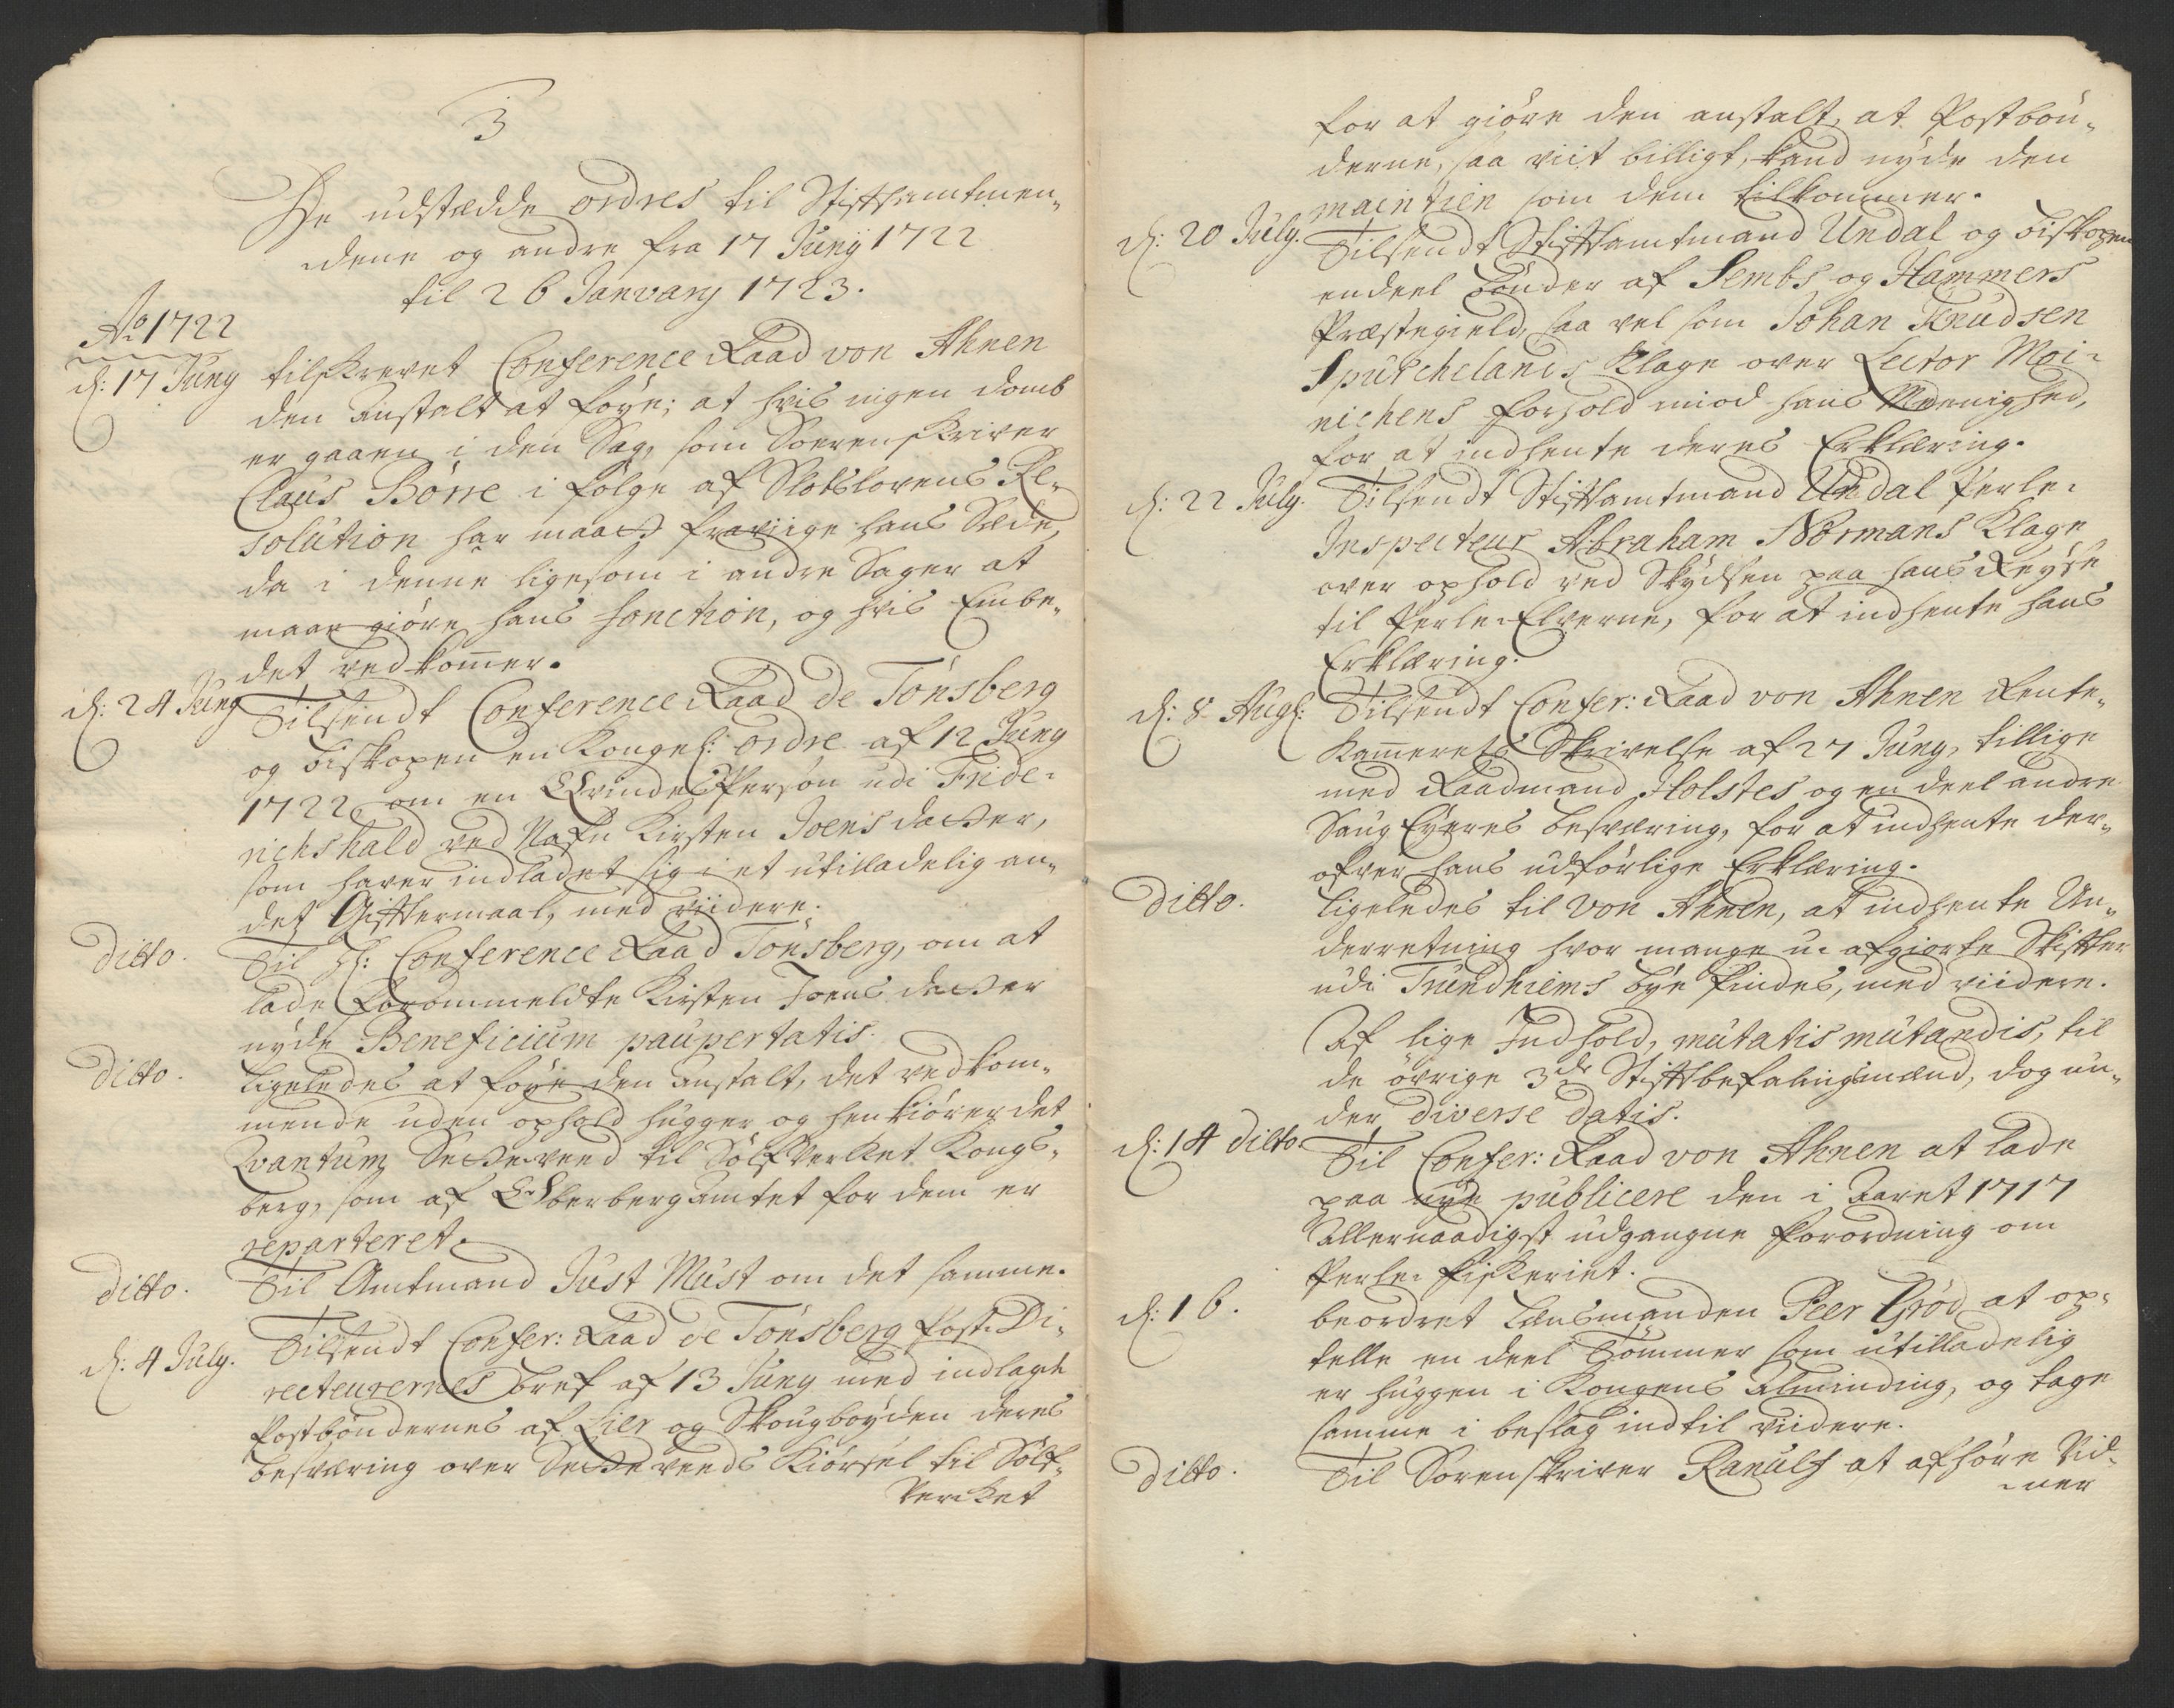 3
De udstædde ordres til Stiftsamtmen-
dene og andre fra 17 Junij 1722
til 26 January 1723.
Ao 1722
d: 17 Juny tilskrevet Conference Raad von Ahnen
den anstalt at føye; at hvis ingen domb
er gaaen i den Sag, som Sorenskriver
Claus Börse i følge af Slotslovens Re-
solution har maatt fraviige hans Sæde,
da i denne ligesom i andre Sager at
maae giöre hans fonction, og hvis Embe-
det vedkommer.
d: 24 Juny Tilsendt Conference Raad de Tönsberg
og Biskopen en Kongel: ordre af 12 Juny
1722 om en Qvindes Person udi Fride-
richshald ved Nafn Kirsten Joensdatter,
som haver indladet sig i et utilladelig an-
det Gifftermaal, med viidere.
ditto. Til H: Conference Raad Tönsberg, om at
lade forommeldte Kirsten Joensdatter
nyde Beneficium paupertatis.
ditto. Ligeledes at føye den anstalt, det vedkom-
mende uden ophold hugger og henkiörer det
Qvantum Setteveed til Sölfverket Kongs-
berg, som af Oberbergamtet for dem er
reparteret.
ditto. Til Amtmand Just Must om det samme.
d: 4 July. Tilsendt Confer: Raad de Tönsberg Post-Di-
recteurernes bref af 13 Juny med indlagde
Postböndernes af Lier og Skougboyden deres
besværing over Setteveeds Kiörsel til Sölf-
Verket
for at giöre den anstalt, at Postbön-
derne, saa viit billigt, kand nyde den
maintien som dem tilkommer.
d: 20 July. Tilsendt Stiftsamtmand Undal og Biskopen
endeel bönder af Sembs og Hammers
Præstegield, saa vel som Johan Knudsen
Spurchelands Klage over Lector Moi-
nichens forhold mod hans Meenighed,
for at indhente deres Erklæring.
d: 22 July. Tilsendt Stiftsamtmand Undal Perle-
Inspecteur Abraham Normans Klage
over ophold ved Skydsen paa hans Reyse
til Perle-Elverne, for at indhente hans
Erklæring.
d: 8 Aug: Tilsendt Confer: Raad von Ahnen Rente-
Kammerets Skrivelse af 27 Juny, tillige
med Raadmand Holstes og en deel andre
Saug Eyeres besværing, for at indhente der-
ofver hans udførlige Erklæring.
ditto. Ligeledes til von Ahnen, at indhente Un-
derretning hvor mange u-afgiorte Skiffter
udi Trundhiems bye findes, med viidere.
Af lige Indhold, mutatis mutandis, til
de övrige 3de Stiftsbefalingsmænd, dog un-
der diverse datis.
d: 14 ditto. Til Confer: Raad von Ahnen at lade
paa nye publicere den i Aaret 1717
Allernaadigst udgangne Forordning om
Perle-fiskeriet.
d: 16. beordret Lensmanden Peer Gröd at op-
telle en deel Tömmer som utilladelig
er huggen i Kongens Alminding, og tage
samme i beslag indtil viidere.
ditto. Til Sorenskriver Ranulf at afhöre Vid-
-ner